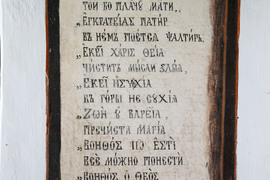 ТОЙ БО ПЛАЧУ МАТИ.
„ЕГКРАТЕІАС ПАТІР
ВЪ НЕМЪ ПОЕТСА ѰАЛТИРЬ.
„ЕКЕІ ХАРІС ѲЕІА
ЧІСТИТЪ МЫСЛИ
„ЕКЕІ ИСУХІА
ВЪ ГОРЫ НЕ СУХІА
„ЗОН У ВАРЕІА,
ПРЕЧІСТА МАРІА
„ВОНѲОС ІШ ЕСТІ
ВСЕ МОЖНО ПОНЕСТИ
„ВОНѲОС О ѲЕОС